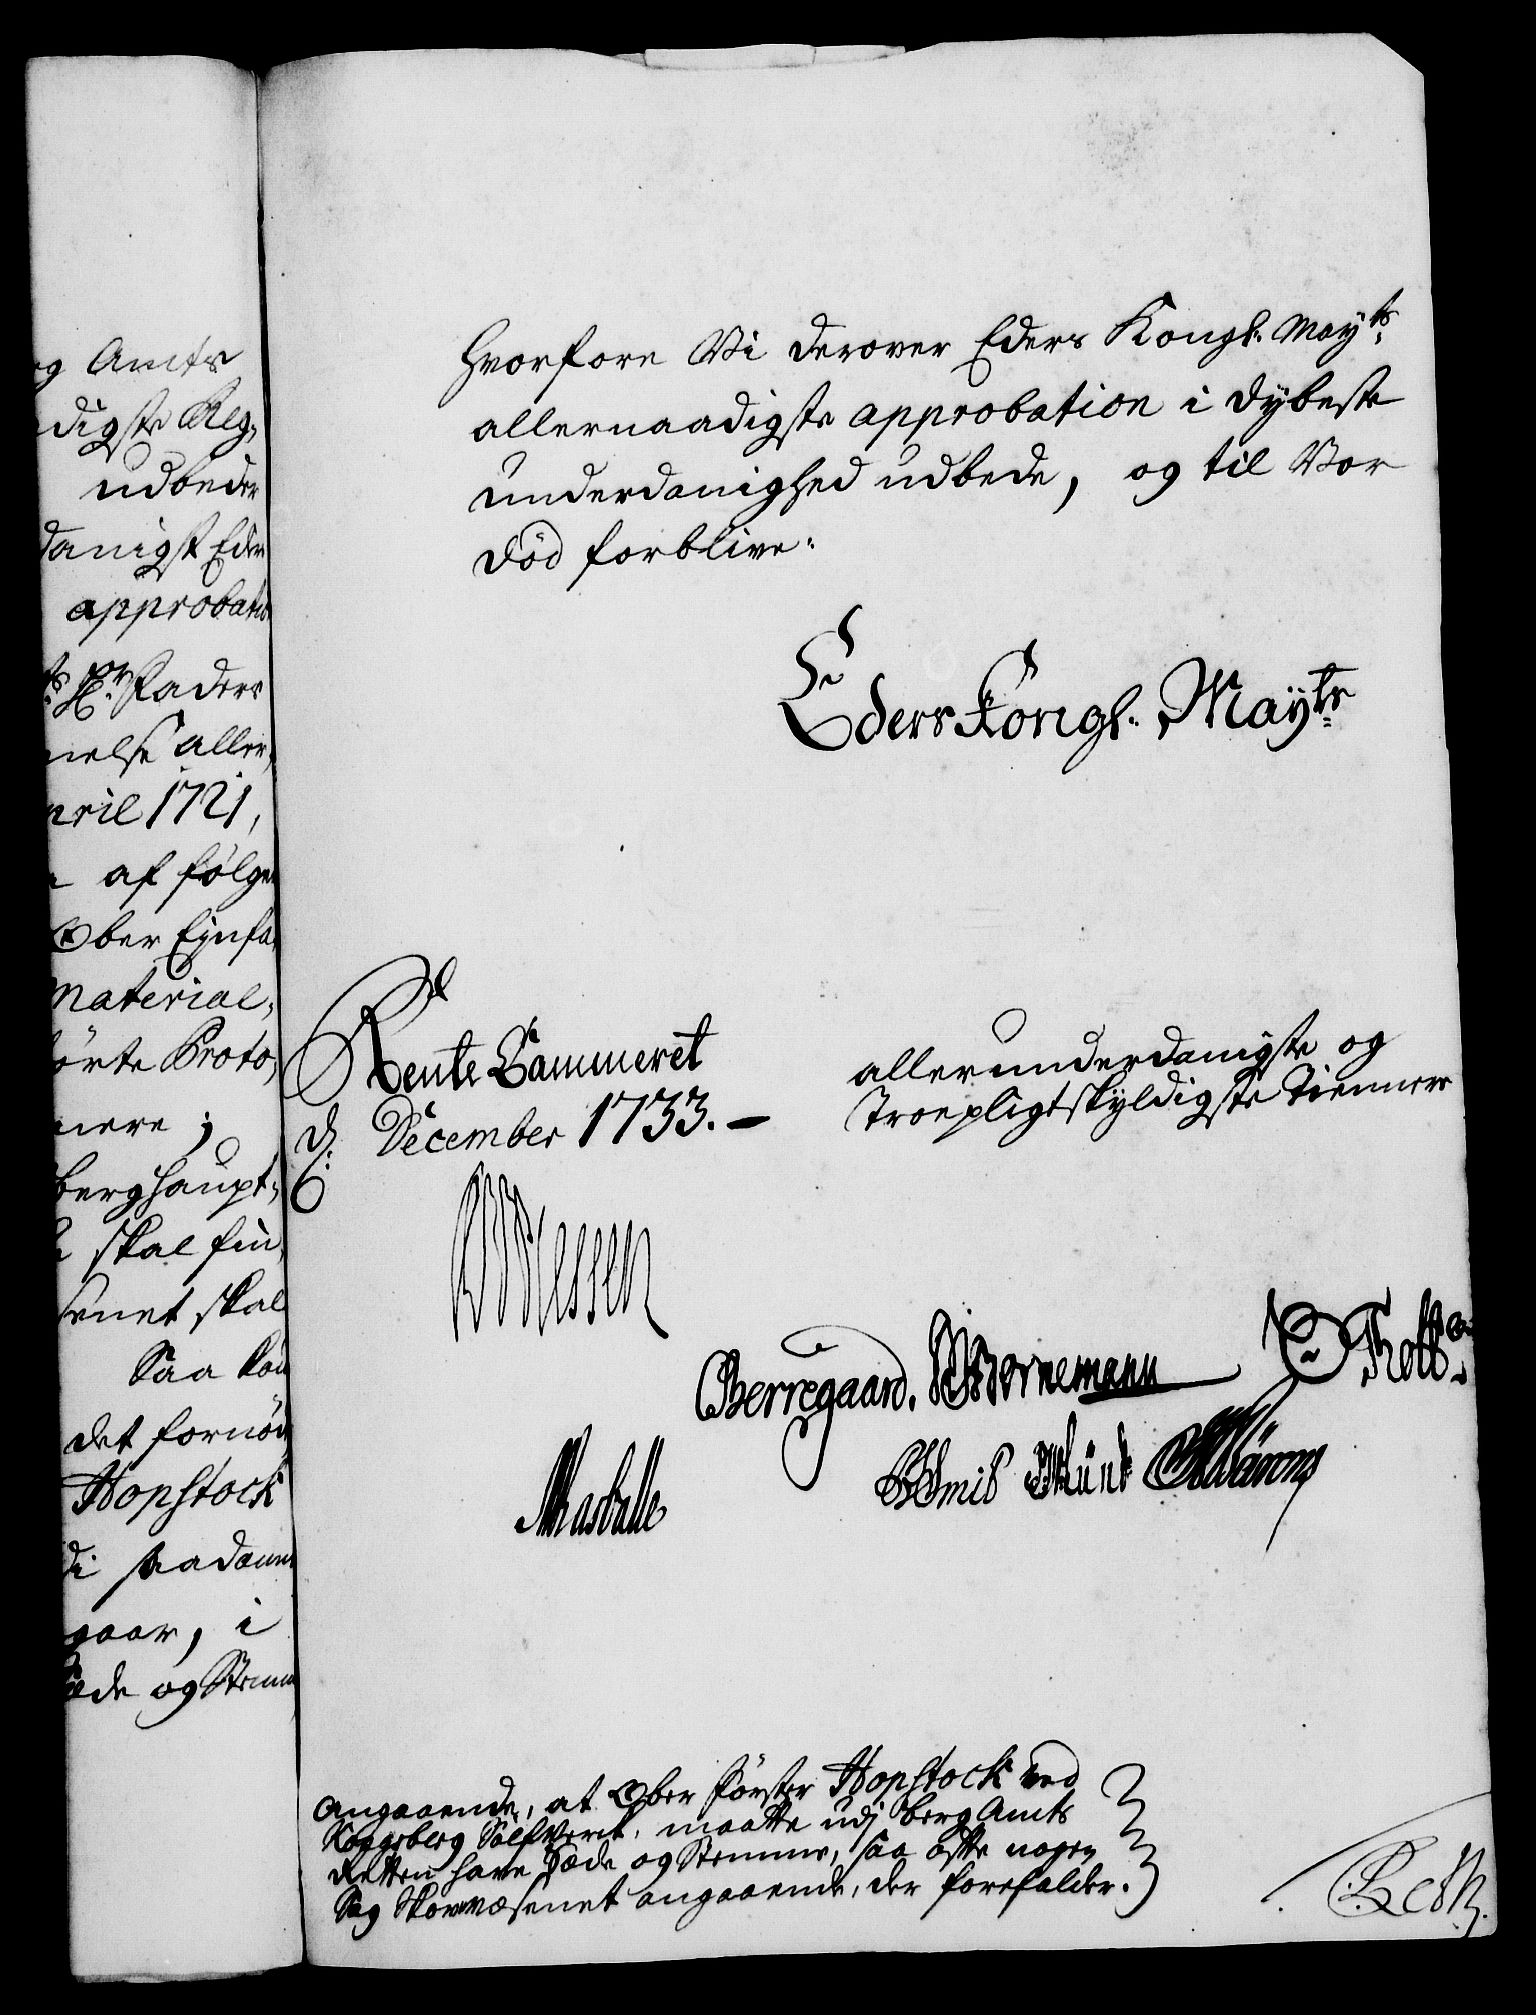 og Amts
digste Reg,
udbeder
danigst Eder
approbati
ts Hr. Faders
nelse aller,
pril 1721,
af følge
Ober Einfa
Material,
örte Proto,
nere ;
berghaupt,
skal fin,
senet skal
Saa kan
det fornöd
Hopstock
di saadann
gaar, i
æde og Stemm
hvorfore Vi derover Eders Kongl. Mayts:
allernaadigste approbation i dybeste
underdanighed udbede, og til Vor
død forblive.
Eders Kongl. Mayts
Rente Cammeret
d: December 1733.
allerunderdanigste og
Troepligtskyldigste Tiennere
Nissen
Berregaard. Bornemann Thott
Rasballe Smib Münk
Angaaende, at Ober Förster Hopstock ved
Kongsberg Sölfverk, maatte udj berg Amts
Retten have Sæde og Stemme, saa ofte nogen
Sag Skovvæsenet angaaende, der forefalder.